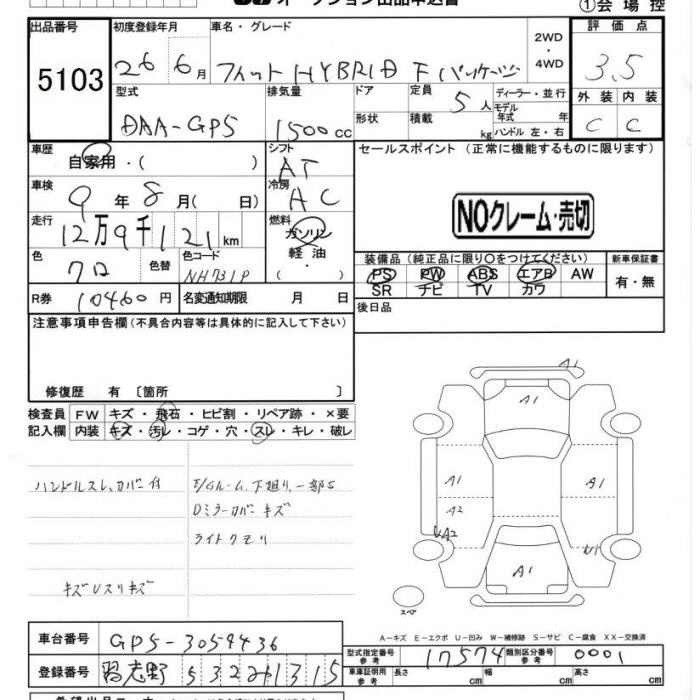 オークション出品申込書
①会場控
出品番号
5103
初度登録年月
26 6月
車名・グレード
フィット HYBRID Fパッケージ
2WD
・
4WD
評価点
3.5
型式
DAA-GP5
排気量
1500cc
ドア
形状
定員
5人
積載
kg
ディーラー・並行
モデル
年式 年
ハンドル 左・右
外装
C
内装
C
車歴
自家用・( )
シフト
AT
セールスポイント(正常に機能するものに限ります)
車検
9年8月( 日)
冷房
AC
NOクレーム・売切
走行
12万9千121km
燃料
ガソリン
軽油
( )
色
クロ
色替
色コード
NH731P
装備品(純正品に限り○をつけてください)
PS PW ABS エアB AW
SR ナビ TV カワ
新車保証書
有・無
R券
10460円
名変通知期限 月 日
後日品
注意事項申告欄(不具合内容等は具体的に記入して下さい)
修復歴 有 〔箇所 〕
検査員
記入欄
FW キズ・飛石・ヒビ割・リペア跡・×要
内装 キズ・汚レ・コゲ・穴・スレ・キレ・破レ
ハンドルスレ、カバー付
キズUスリキズ
E/Gルーム、下廻り、一部S
Dミラーカバーキズ
ライトクモリ
A1
A1
A1
A1
A2
A2
U1
A1
スペア
A-キズ E-エクボ U-凹み W-補修跡 S-サビ C-腐食 XX-交換済
車台番号
GP5-3059436
登録番号
習志野 532
1315
型式指定番号
参考
17574
類別区分番号
参考
0001
車庫証明用
参考
長さ
cm
幅
cm
高さ
cm